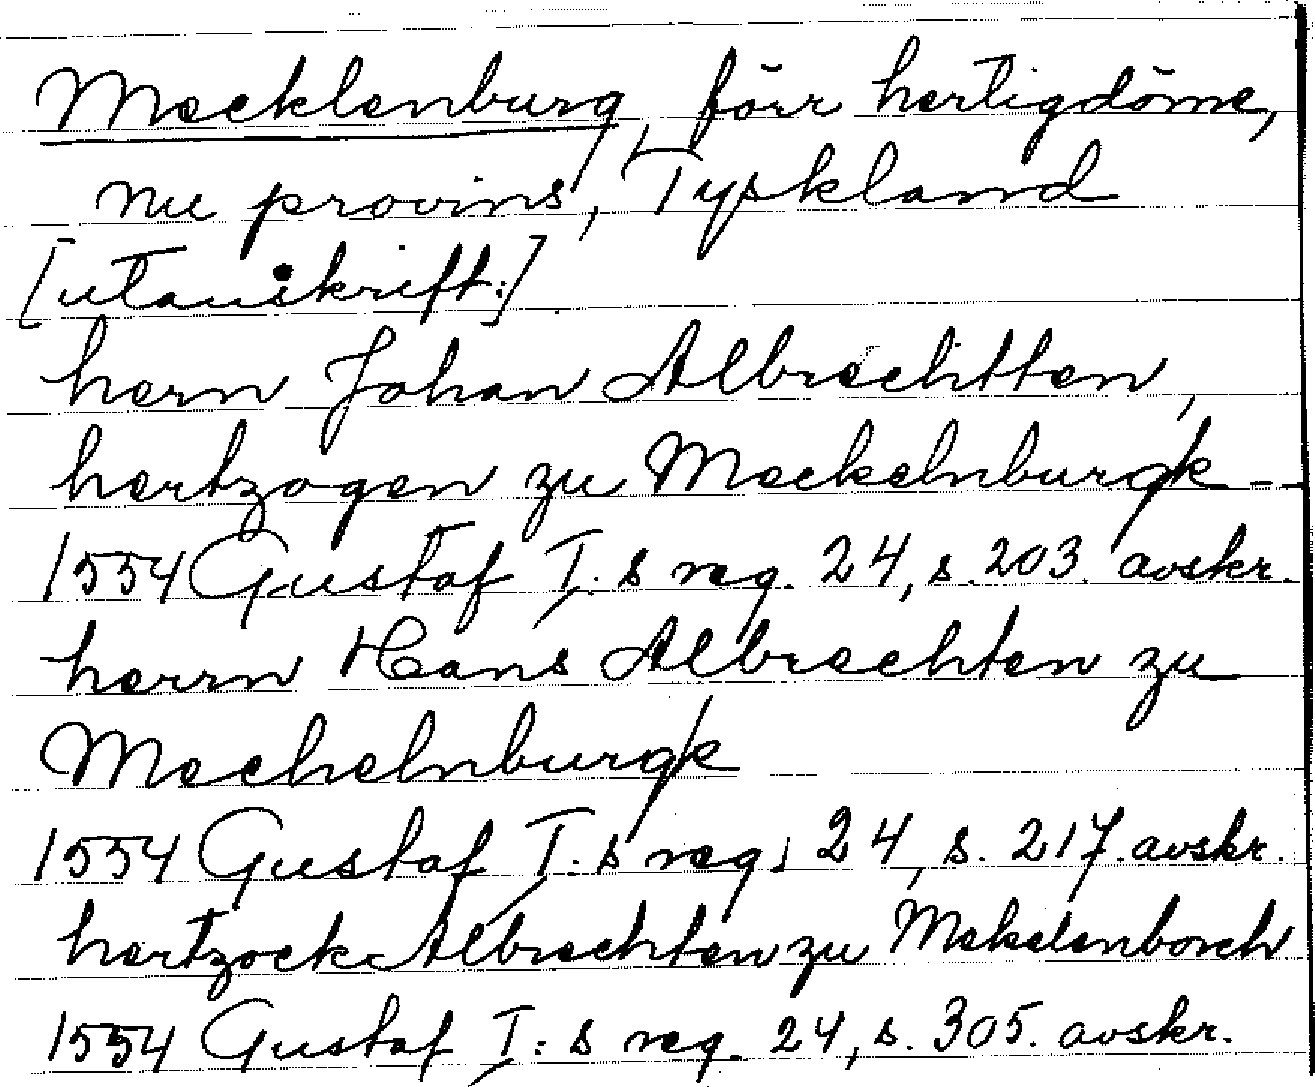 Mecklenburg, förr hertigdöme,
nu provins, Tyskland
[utanskrift:]
hern Johan Albrechtten,
hertzogen zu Meckelnburgk --
1554 Gustaf I:s reg. 24, s. 203. avskr.
herrn Hans Albrechten zu
Mechelnburgk
1554 Gustaf I:s reg. 24, s. 217. avskr.
hertzock Albrechten zu Mekelenborch
1554 Gustaf I:s reg. 24, s. 305. avskr.